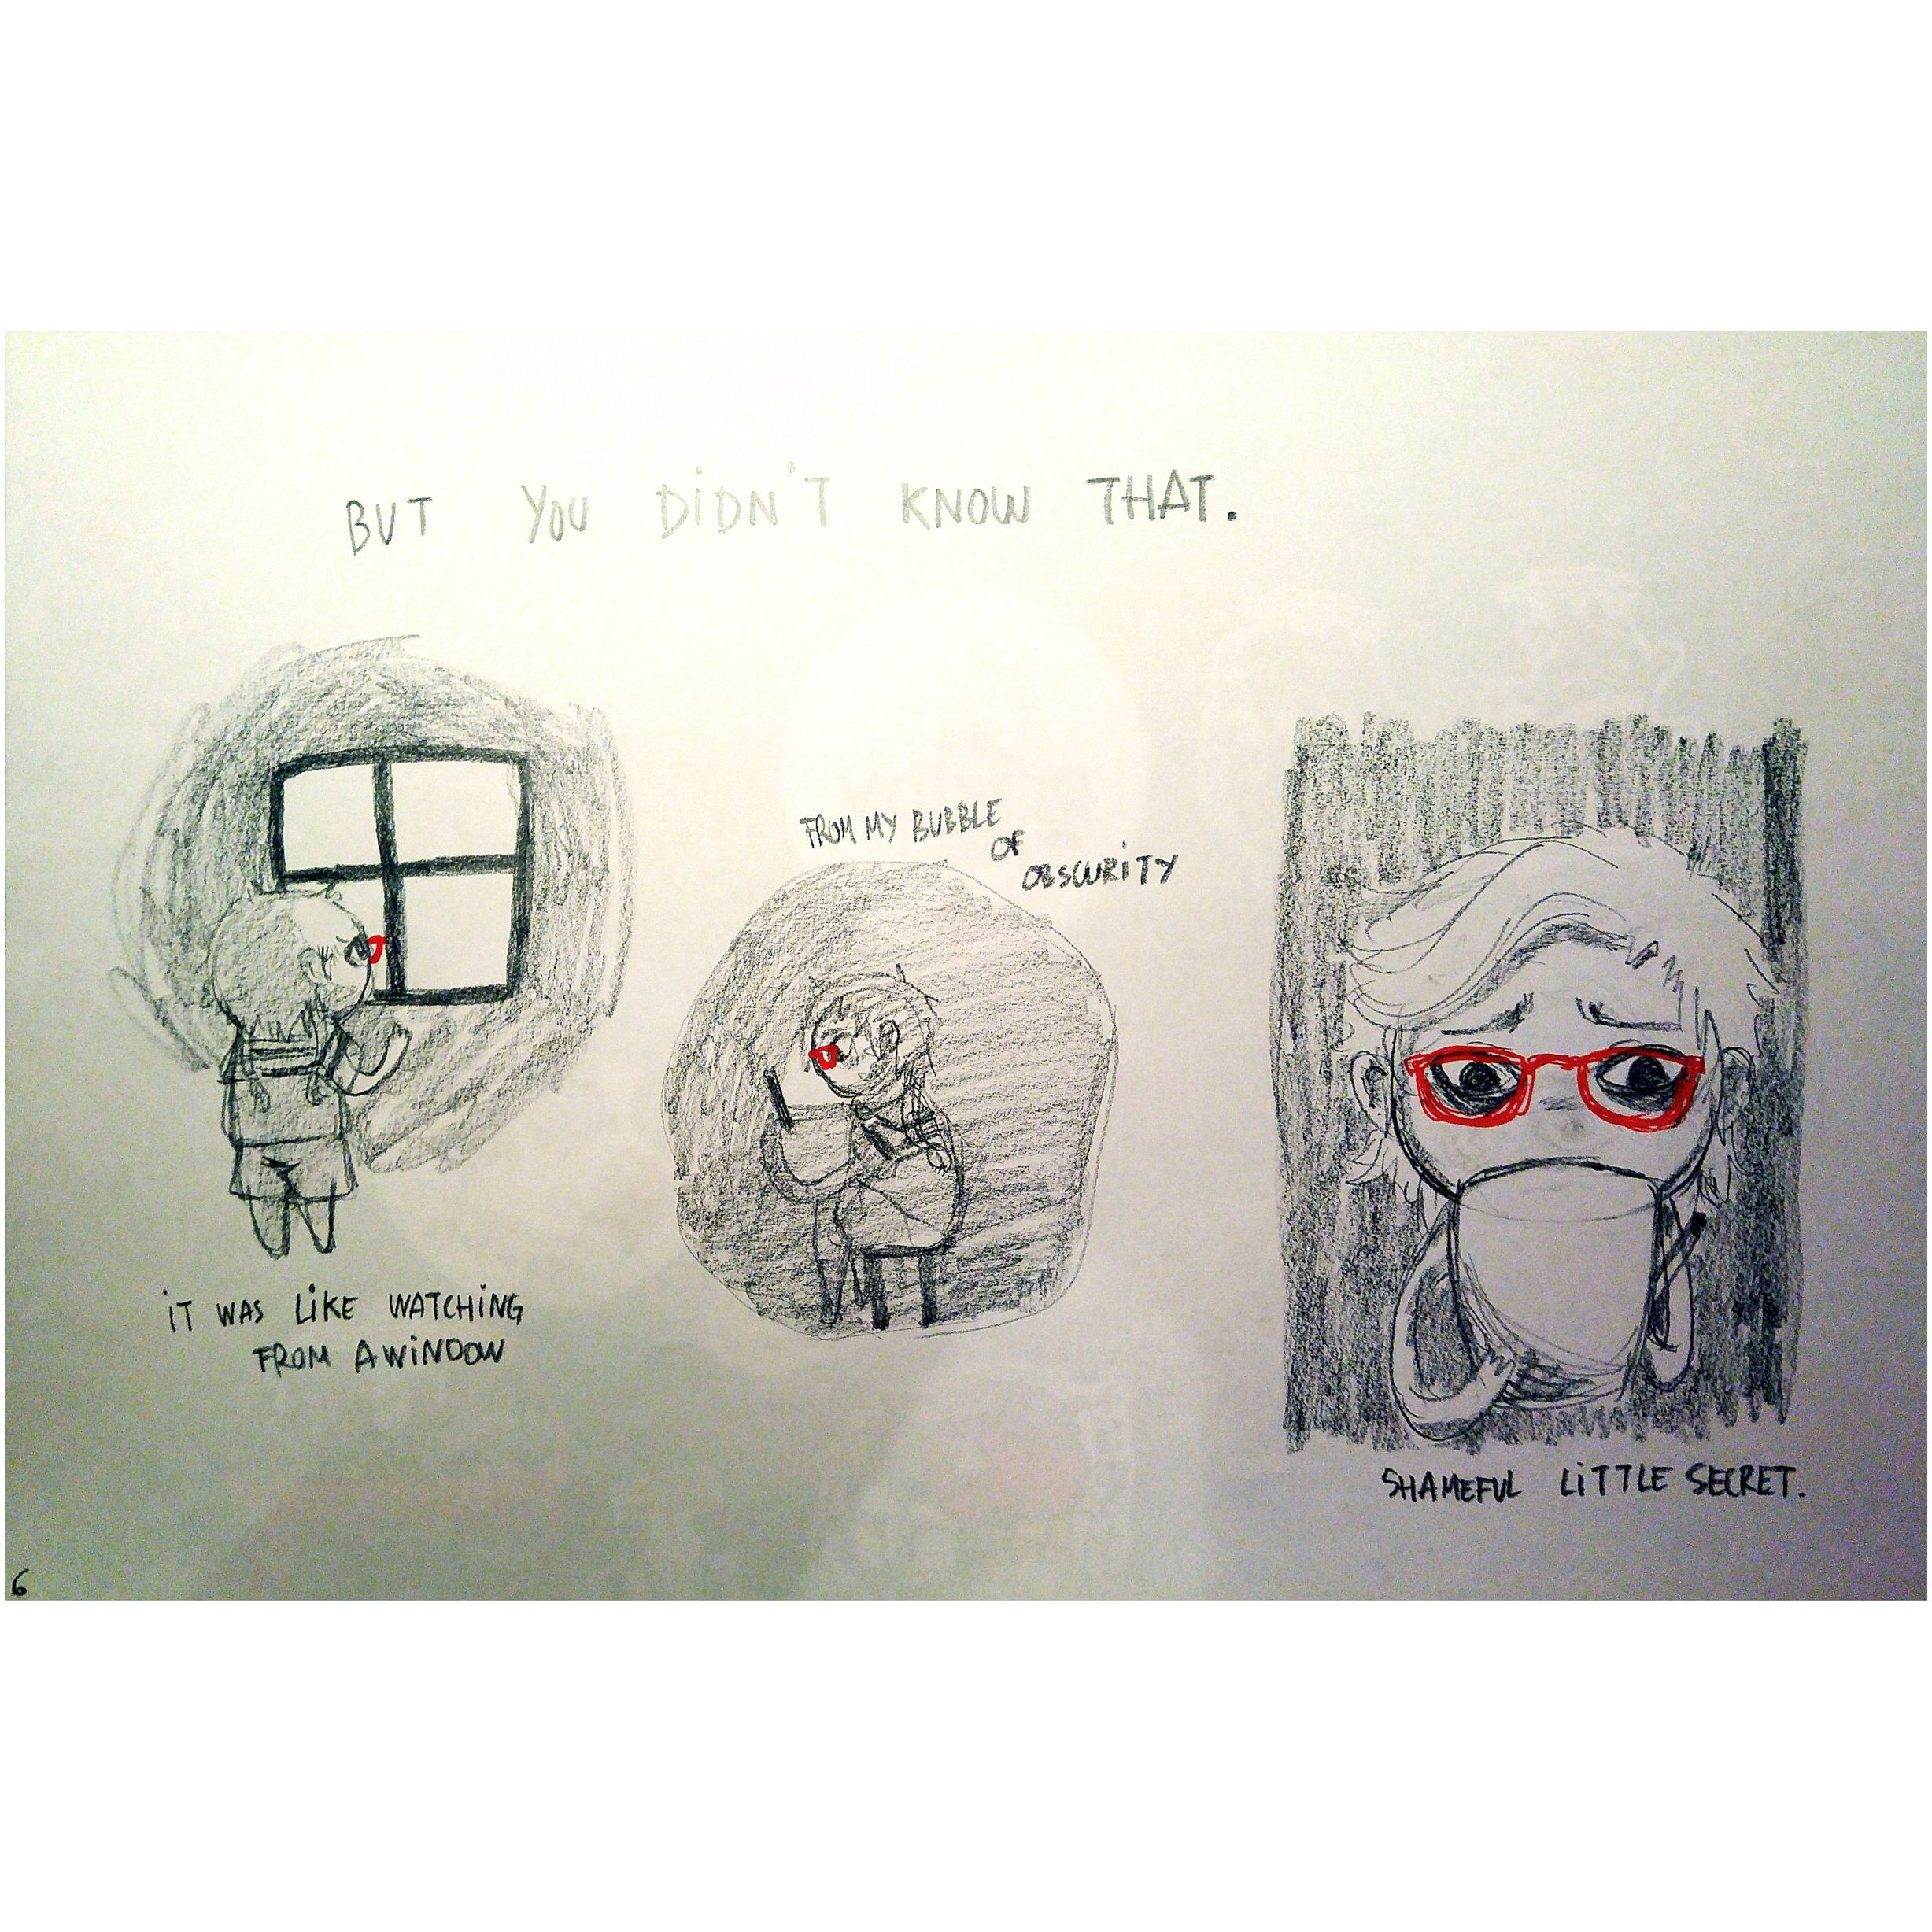 BUT YOU DIDN'T KNOW THAT.
IT WAS LIKE WATCHING
FROM A WINDOW
FROM MY BUBBLE
OF
OBSCURITY
SHAMEFUL LITTLE SECRET.
6